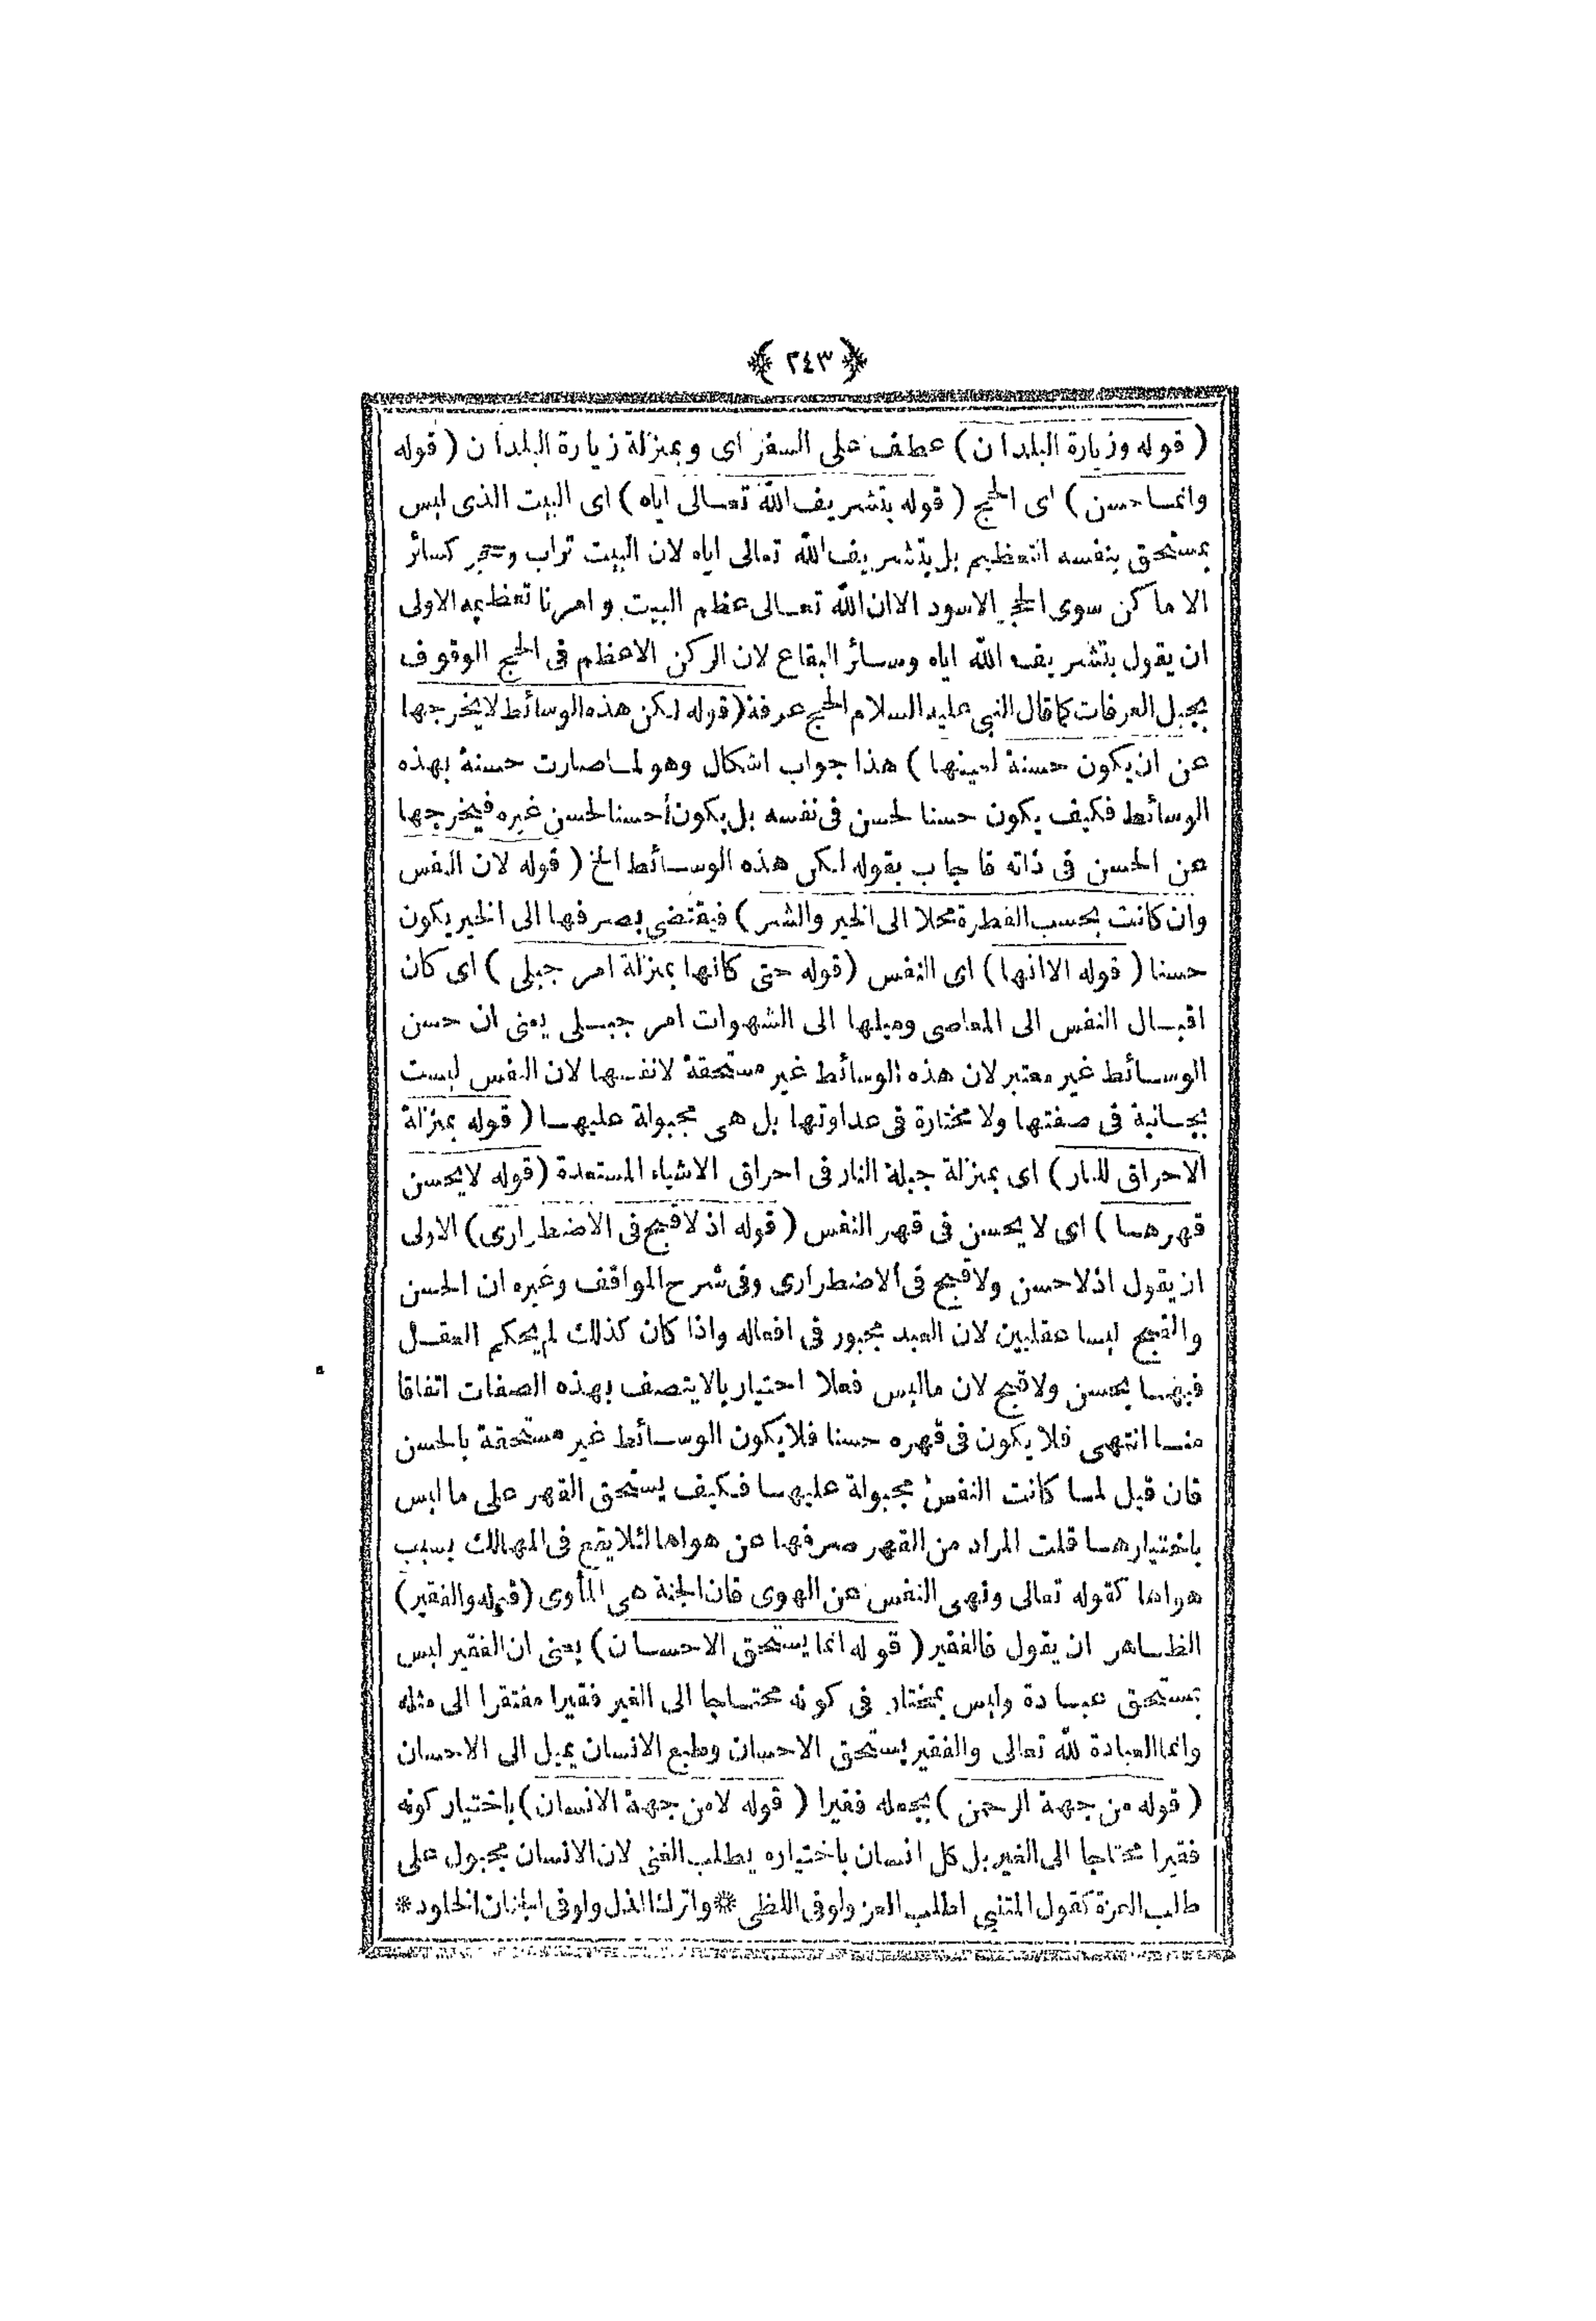 ﴿ ٢٤٣ ﴾
( قوله وزيارة البلدان ) عطف على السفر اى وبمنزلة زيارة البلدان ( قوله
وانما حسن ) اى الحج ( قوله بتشريف الله تعالى اياه ) اى البيت الذى ليس
بمستحق بنفسه التعظيم بل بتشريف الله تعالى اياه لان البيت تراب وحجر كسائر
الاماكن سوى الحجر الاسود الا ان الله تعالى عظم البيت وامرنا تعظيمه الاولى
ان يقول بتشريف الله اياه وسائر البقاع لان الركن الاعظم فى الحج الوقوف
بجبل العرفات كما قال النبى عليه السلام الحج عرفة ( قوله لكن هذه الوسائط لا يخرجها
عن ان يكون حسنة لعينها ) هذا جواب اشكال وهو لما صارت حسنة بهذه
الوسائط فكيف يكون حسنا لحسن فى نفسه بل يكون حسنا لحسن غيره فيخرجها
عن الحسن فى ذاته فاجاب بقوله لكن هذه الوسائط الخ ( قوله لان النفس
وان كانت بحسب الفطرة محلا الى الخير والشر ) فيقتضى بصرفها الى الخير يكون
حسنا ( قوله الا انها ) اى النفس ( قوله حتى كانها بمنزلة امر جبلى ) اى كان
اقبال النفس الى المعاصى وميلها الى الشهوات امر جبلى يعنى ان حسن
الوسائط غير معتبر لان هذه الوسائط غير مستحقة لانفسها لان النفس ليست
بجانية فى صفتها ولا مختارة فى عداوتها بل هى مجبولة عليها ( قوله بمنزلة
الاحراق للنار ) اى بمنزلة جبلة النار فى احراق الاشياء المستعدة ( قوله لا يحسن
قهرها ) اى لا يحسن فى قهر النفس ( قوله اذ لا قبح فى الاضطرارى ) الاولى
ان يقول اذ لا حسن ولا قبح فى الاضطرارى وفى شرح المواقف وغيره ان الحسن
والقبح ليسا عقليين لان العبد مجبور فى افعاله واذا كان كذلك لم يحكم العقل
فيها بحسن ولا قبح لان ما ليس فعلا اختياريا لا يتصف بهذه الصفات اتفاقا
منا انتهى فلا يكون فى قهره حسنا فلا يكون الوسائط غير مستحقة بالحسن
فان قيل لما كانت النفس مجبولة عليها فكيف يستحق القهر على ما ليس
باختيارها قلت المراد من القهر صرفها عن هواها لئلا يقع فى المهالك بسبب
هواها كقوله تعالى ونهى النفس عن الهوى فان الجنة هى المأوى ( قوله والفقير )
الظاهر ان يقول فالفقير ( قوله انما يستحق الاحسان ) يعنى ان الفقير ليس
بمستحق عبادة وليس بمختار فى كونه محتاجا الى الغير فقيرا مفتقرا الى مثله
وانما العبادة لله تعالى والفقير يستحق الاحسان وطبع الانسان يميل الى الاحسان
( قوله من جهة الرحمن ) بجعله فقيرا ( قوله لا من جهة الانسان ) باختيار كونه
فقيرا محتاجا الى الغير بل كل انسان باختياره يطلب الغنى لان الانسان مجبول على
طالب العزة كقول المتنبى اطلب العز ولو فى اللظى * واترك الذل ولو فى الجنان الخلود *